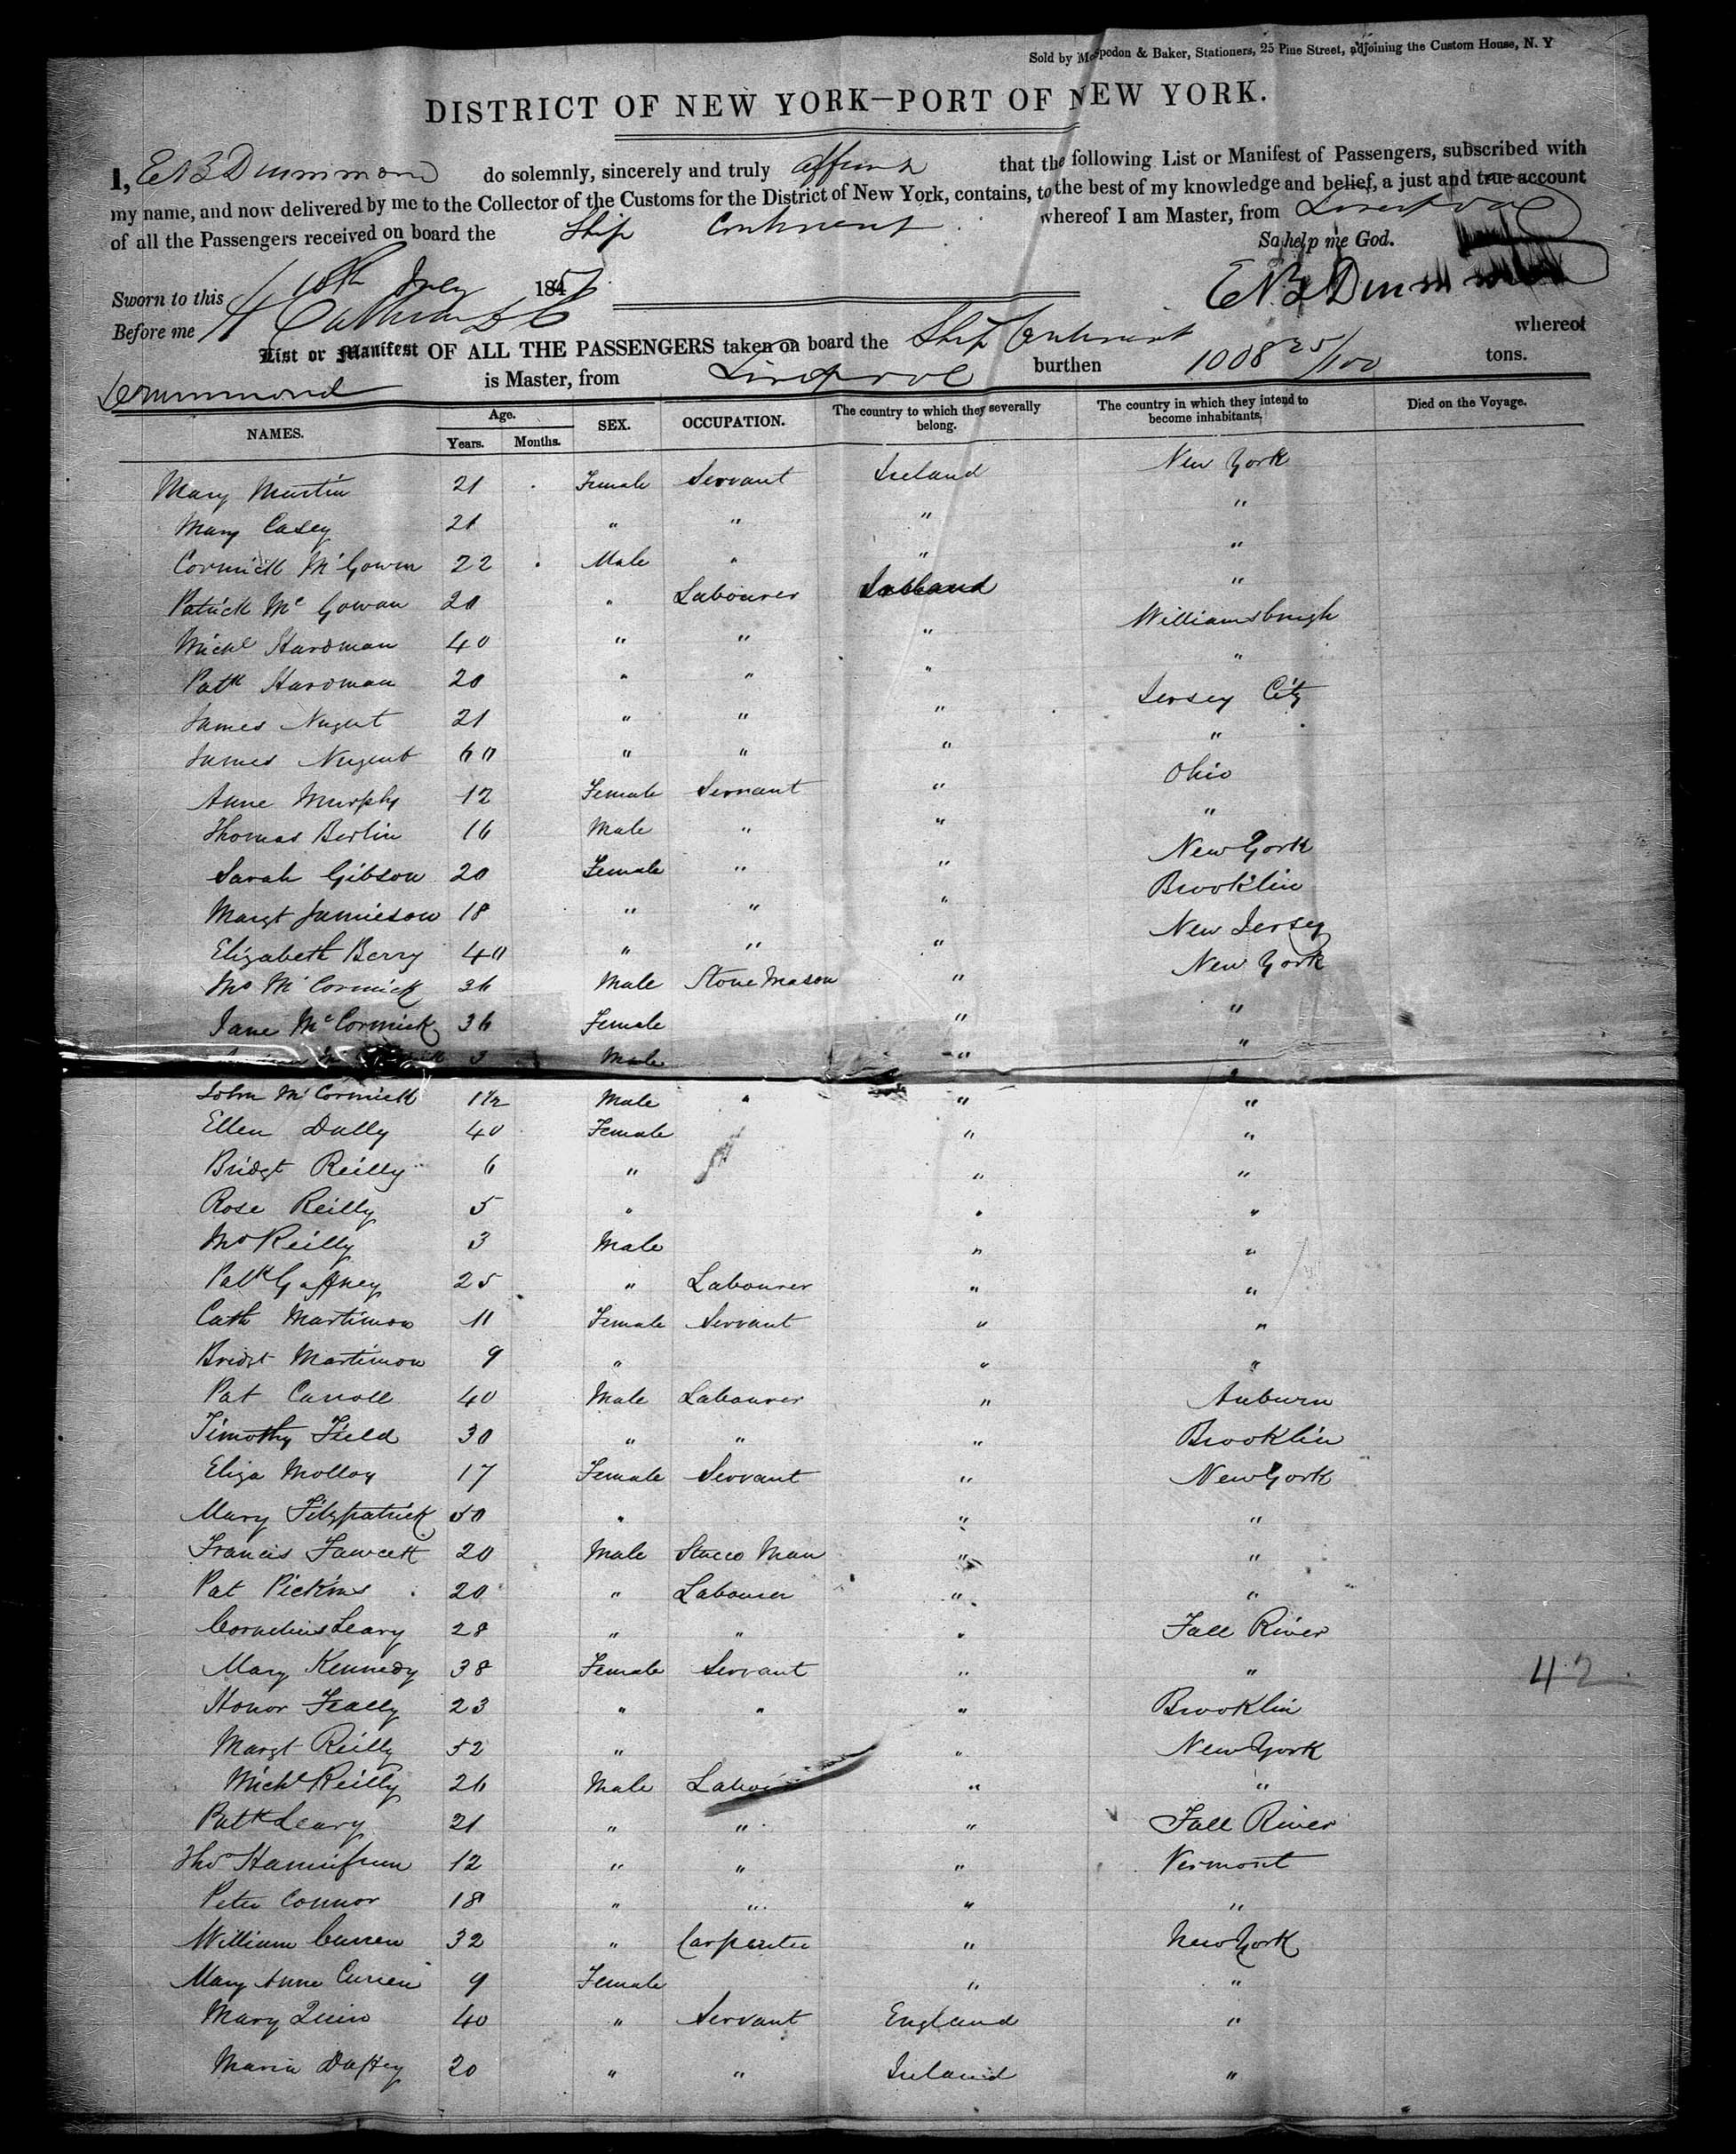 Sold by Mospedon & Baker, Stationers, 25 Pine Street, adjoining the Custom House, N. Y
DISTRICT OF NEW YORK—PORT OF NEW YORK.
I, E N B Drummond do solemnly, sincerely and truly affirm that the following List or Manifest of Passengers, subscribed with
my name, and now delivered by me to the Collector of the Customs for the District of New York, contains, to the best of my knowledge and belief, a just and true account
of all the Passengers received on board the Ship Continent whereof I am Master, from Liverpool
So help me God.
Sworn to this 10th July 185
Before me
List or Manifest OF ALL THE PASSENGERS taken on board the Ship Continent whereof
Drummond is Master, from Liverpool burthen 1008 25/100 tons.
NAMES. Age. Years. Months. SEX. OCCUPATION. The country to which they severally belong. The country in which they intend to become inhabitants. Died on the Voyage.
Mary Martin 21 Female Servant Ireland New York
Mary Casey 21 " " " "
Cormick McGowan 22 Male " " "
Patrick Mc Gowan 20 " Labourer Ireland "
Michl Hardman 40 " " " Williamsburgh
Patk Hardman 20 " " " "
James Nugent 21 " " " Jersey City
James Nugent 60 " " " "
Anne Murphy 12 Female Servant " Ohio
Thomas Berlin 16 Male " " "
Sarah Gibson 20 Female " " New York
Margt Jamieson 18 " " " Brooklin
Elizabeth Berry 40 " " " New Jersey
Mc Cormick 36 Male Stone Mason " New York
Jane McCormick 36 Female " "
3 Male " "
John McCormick 1½ Male " " "
Ellen Dully 40 Female " "
Bridgt Reilly 6 " " "
Rose Reilly 5 " " "
Reilly 3 Male " "
Patk Gaffney 25 " Labourer " "
Cath Martimow 11 Female Servant " "
Bridgt Martimow 9 " " "
Pat Carroll 40 Male Labourer " Auburn
Timothy Field 30 " " " Brooklin
Eliza Molloy 17 Female Servant " New York
Mary Fitzpatrick 50 " " "
Francis Fawcett 20 Male Stucco Man " "
Pat Pickins 20 " Labourer " "
Cornelius Leary 28 " " " Fall River
Mary Kennedy 38 Female Servant " " 42
Honor Feally 23 " " " Brooklin
Margt Reilly 52 " " New York
Michl Reilly 26 Male Labour " "
Patk Leary 21 " " " Fall River
Thos 12 " " " Vermont
Peter Connor 18 " " " "
William Curren 32 " Carpenter " New York
Mary Anne Curren 9 Female " "
Mary Quin 40 " Servant England "
Maria Daffey 20 " " Ireland "